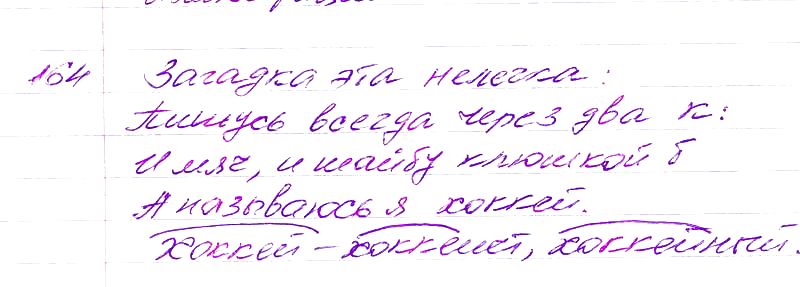 164 Загадка эта нелегка:
Пишусь всегда через два к:
И мяч, и шайбу клюшкой б
А называюсь я хоккей.
Хоккей – хоккеист, хоккейный.